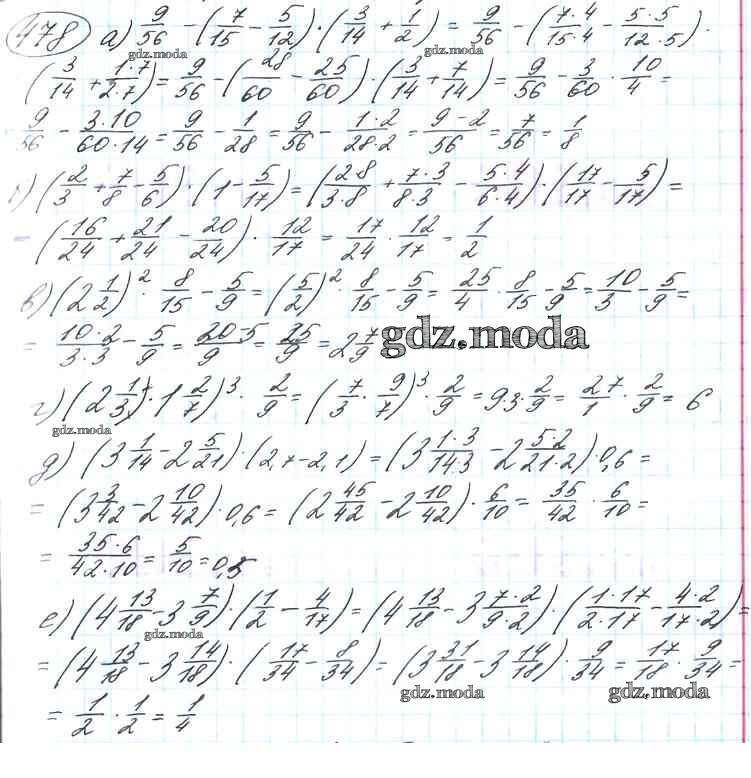 478 а) 9/56 - (7/15 - 5/12) · (3/14 + 1/2) = 9/56 - (7·4/15·4 - 5·5/12·5) ·
gdz.moda
(3/14 + 1·7/2·7) = 9/56 - (28/60 - 25/60) · (3/14 + 7/14) = 9/56 - 3/60 · 10/4 =
9/56 - 3·10/60·14 = 9/56 - 1/28 = 9/56 - 1·2/28·2 = 9-2/56 = 7/56 = 1/8
) (2/3 + 7/8 - 5/6) · (1 - 5/17) = (2·8/3·8 + 7·3/8·3 - 5·4/6·4) · (17/17 - 5/17) =
(16/24 + 21/24 - 20/24) · 12/17 = 17/24 · 12/17 = 1/2
в) (2 1/2)² · 8/15 - 5/9 = (5/2)² · 8/15 - 5/9 = 25/4 · 8/15 - 5/9 = 10/3 - 5/9 =
= 10·2/3·3 - 5/9 = 20-5/9 = 25/9 = 2 7/9
gdz.moda
г) (2 1/3 · 1 2/7)³ · 2/9 = (7/3 · 9/7)³ · 2/9 = 9·3 · 2/9 = 27/1 · 2/9 = 6
gdz.moda
д) (3 1/14 - 2 5/21) · (2,7 - 2,1) = (3 1·3/14·3 - 2 5·2/21·2) · 0,6 =
= (3 3/42 - 2 10/42) · 0,6 = (2 45/42 - 2 10/42) · 6/10 = 35/42 · 6/10 =
= 35·6/42·10 = 5/10 = 0,5
е) (4 13/18 - 3 7/9) · (1/2 - 4/17) = (4 13/18 - 3 7·2/9·2) · (1·17/2·17 - 4·2/17·2) =
gdz.moda
= (4 13/18 - 3 14/18) · (17/34 - 8/34) = (3 31/18 - 3 14/18) · 9/34 = 17/18 · 9/34 =
gdz.moda gdz.moda
= 1/2 · 1/2 = 1/4